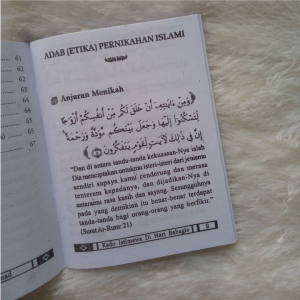 61
62
63
65
66
67
67
ADAB (ETIKA) PERNIKAHAN ISLAMI
Anjuran Menikah
وَمِنْ ءَايَٰتِهِۦٓ أَنْ خَلَقَ لَكُم مِّنْ أَنفُسِكُمْ أَزْوَٰجًا
لِّتَسْكُنُوٓا۟ إِلَيْهَا وَجَعَلَ بَيْنَكُم مَّوَدَّةً وَرَحْمَةً
إِنَّ فِى ذَٰلِكَ لَءَايَٰتٍ لِّقَوْمٍ يَتَفَكَّرُونَ
"Dan di antara tanda-tanda kekuasaan-Nya ialah
Dia menciptakan untukmu isteri-isteri dari jenismu
sendiri supaya kamu cenderung dan merasa
tenteram kepadanya, dan dijadikan-Nya di
antaramu rasa kasih dan sayang. Sesungguhnya
pada yang demikian itu benar-benar terdapat
tanda-tanda bagi orang-orang yang berfikir."
(Surat Ar-Rum: 21)
Kado Istimewa Di Hari Bahagia